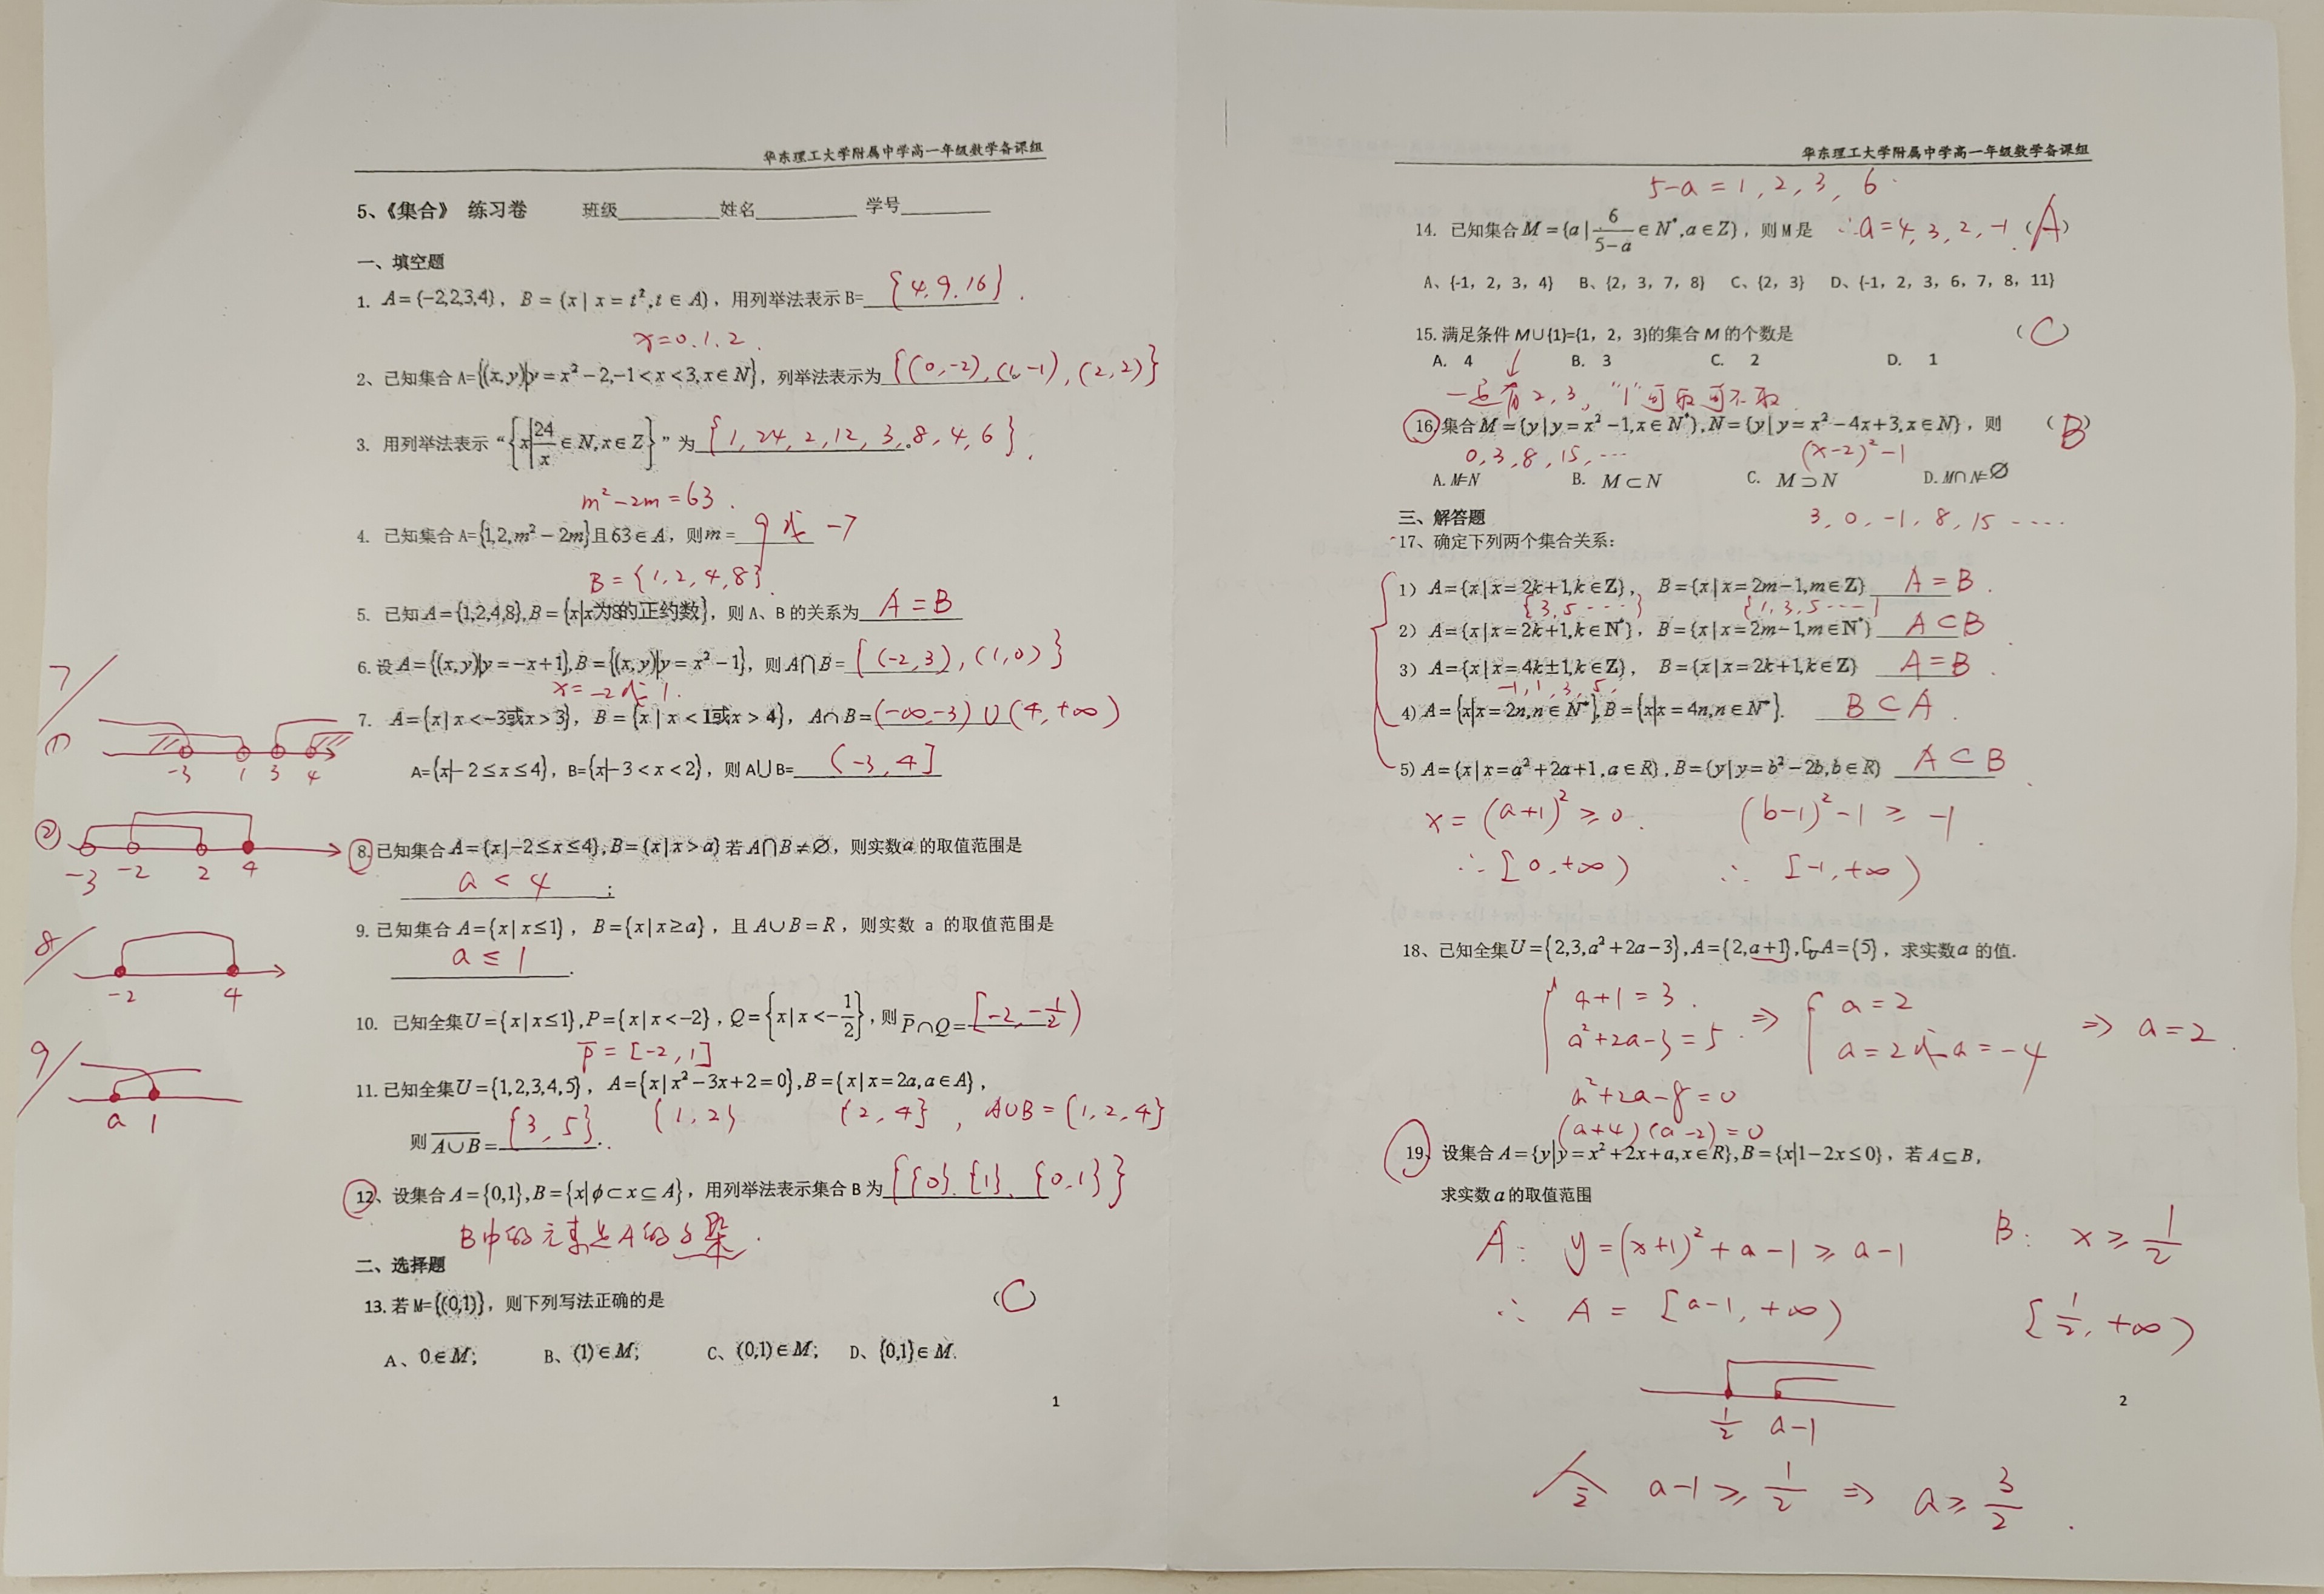 华东理工大学附属中学高一年级数学备课组
5、《集合》 练习卷 班级________姓名________ 学号________
一、填空题
1. A={-2,2,3,4}, B={x|x=t²,t∈A}, 用列举法表示B= {4,9,16}.
x=0,1,2.
2、已知集合A={(x,y)|y=x²-2,-1<x<3,x∈N}, 列举法表示为 {(0,-2),(1,-1),(2,2)}
3. 用列举法表示“{x|24/x∈N,x∈Z}”为 {1,24,2,12,3,8,4,6}.
m²-2m=63.
4. 已知集合A={1,2,m²-2m}且63∈A, 则m= 9或-7
B={1,2,4,8}
5. 已知A={1,2,4,8},B={x|x为8的正约数}, 则A、B的关系为 A=B
6. 设A={(x,y)|y=-x+1},B={(x,y)|y=x²-1}, 则A∩B= {(-2,3),(1,0)}
x=-2或1.
7. A={x|x<-3或x>3}, B={x|x<1或x>4}, A∩B= (-∞,-3)∪(4,+∞)
A={x|-2≤x≤4}, B={x|-3<x<2}, 则A∪B= (-3,4]
7/
① -3 1 3 4
② -3 -2 2 4
8. 已知集合A={x|-2≤x≤4},B={x|x>a}若A∩B≠∅, 则实数a的取值范围是
a<4;
8/ -2 4
9. 已知集合A={x|x≤1}, B={x|x≥a}, 且A∪B=R, 则实数a的取值范围是
a≤1.
9/ a 1
10. 已知全集U={x|x≤1},P={x|x<-2}, Q={x|x<-1/2}, 则P̅∩Q= [-2,-1/2)
P̅=[-2,1]
11. 已知全集U={1,2,3,4,5}, A={x|x²-3x+2=0},B={x|x=2a,a∈A},
{1,2} {2,4}, A∪B={1,2,4}
则A∪B̅= {3,5}.
12、设集合A={0,1},B={x|ϕ⊂x⊆A}, 用列举法表示集合B为 {{0},{1},{0,1}}
B中的元素是A的子集.
二、选择题
13. 若M={(0,1)}, 则下列写法正确的是 (C)
A、0∈M; B、(1)∈M; C、(0,1)∈M; D、{0,1}∈M.
1
华东理工大学附属中学高一年级数学备课组
5-a=1,2,3,6.
14. 已知集合M={a|6/(5-a)∈N*,a∈Z}, 则M是 ∴a=4,3,2,-1 (A)
A、{-1, 2, 3, 4} B、{2, 3, 7, 8} C、{2, 3} D、{-1, 2, 3, 6, 7, 8, 11}
15. 满足条件M∪{1}={1, 2, 3}的集合M的个数是 (C)
A. 4 B. 3 C. 2 D. 1
一定有2,3, “1”可取可不取
16. 集合M={y|y=x²-1,x∈N*},N={y|y=x²-4x+3,x∈N}, 则 (B)
0,3,8,15,… (x-2)²-1
A. M=N B. M⊂N C. M⊃N D. M∩N=∅
3,0,-1,8,15……
三、解答题
17、确定下列两个集合关系:
1) A={x|x=2k+1,k∈Z}, B={x|x=2m-1,m∈Z} A=B.
{3,5……} {1,3,5……}
2) A={x|x=2k+1,k∈N*}, B={x|x=2m-1,m∈N*} A⊂B
3) A={x|x=4k±1,k∈Z}, B={x|x=2k+1,k∈Z} A=B.
-1,1,3,5,
4) A={x|x=2n,n∈N*},B={x|x=4n,n∈N*}. B⊂A.
5) A={x|x=a²+2a+1,a∈R},B={y|y=b²-2b,b∈R} A⊂B
x=(a+1)²≥0. (b-1)²-1≥-1
∴[0,+∞) ∴[-1,+∞)
18、已知全集U={2,3,a²+2a-3},A={2,a+1},∁ᵤA={5}, 求实数a的值.
{a+1=3. ⇒ {a=2 ⇒ a=2.
a²+2a-3=5. a=2或a=-4
a²+2a-8=0
(a+4)(a-2)=0
19、设集合A={y|y=x²+2x+a,x∈R},B={x|1-2x≤0}, 若A⊆B,
求实数a的取值范围
A: y=(x+1)²+a-1≥a-1 B: x≥1/2
∴ A=[a-1,+∞) [1/2,+∞)
1/2 a-1
令 a-1≥1/2 ⇒ a≥3/2.
2